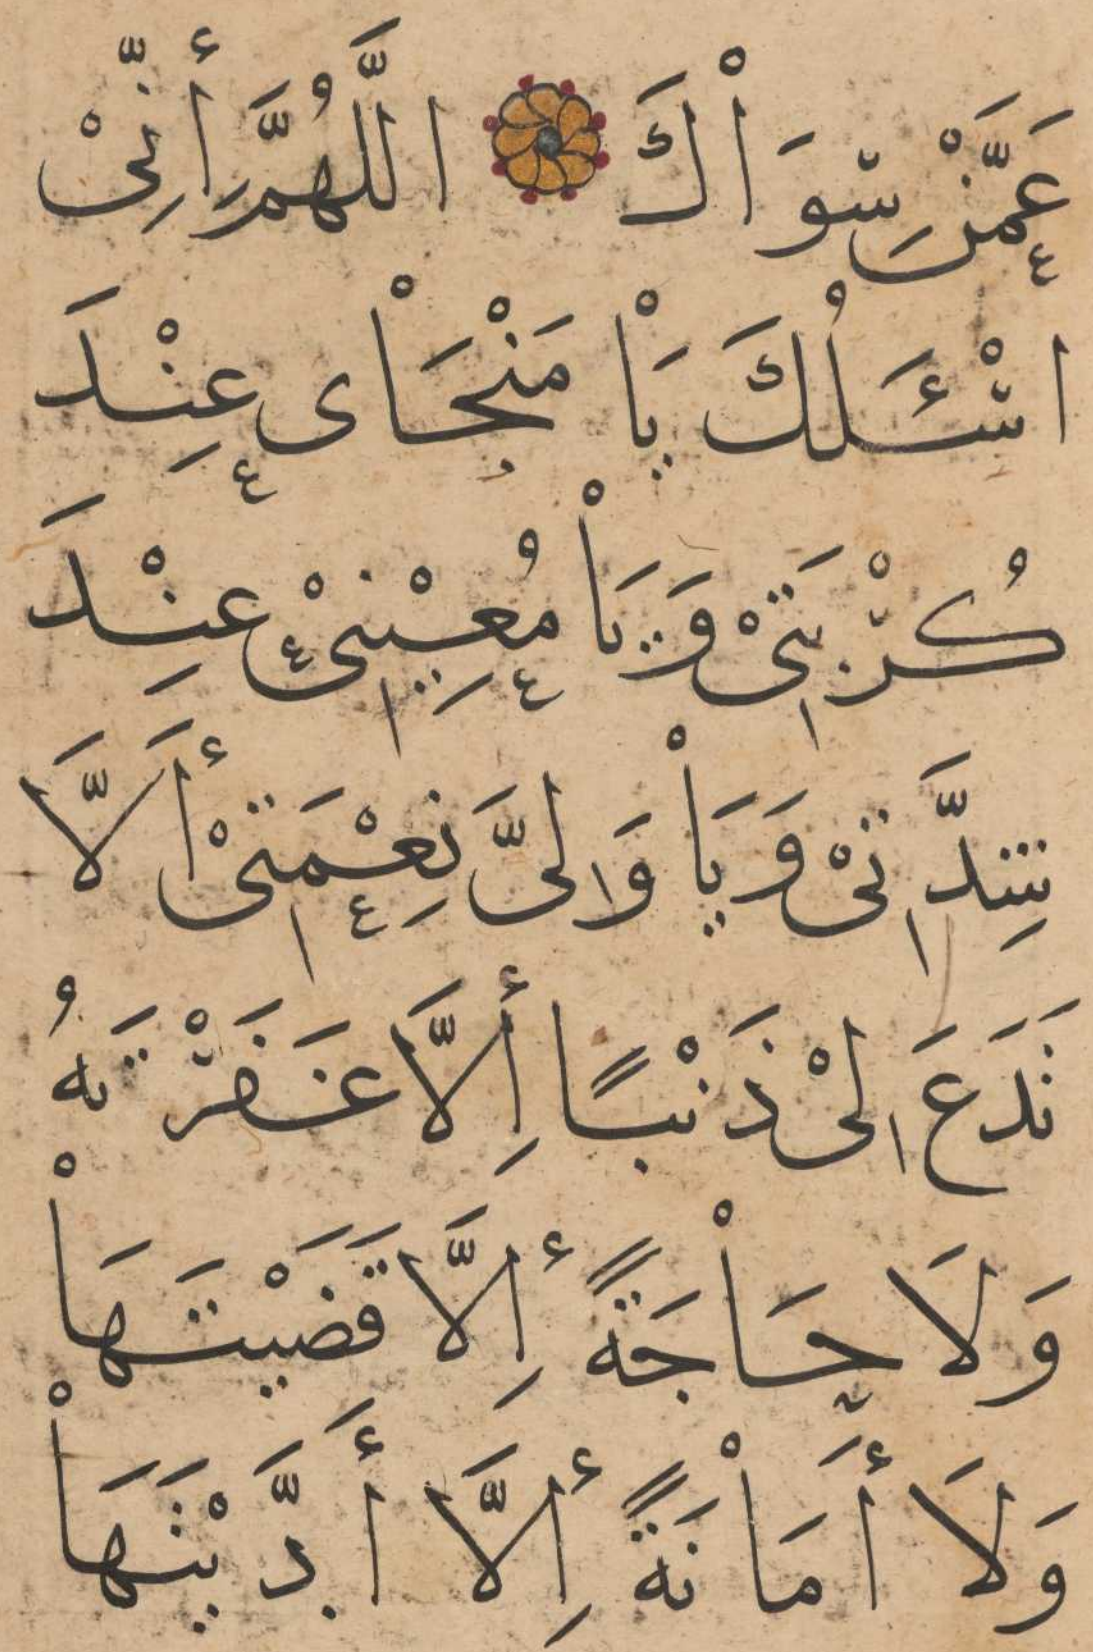 عَمَّنْ سِوَاْكَ اللَّهُمَّ أِنِّىْ
اسْئَلُكَ يَاْ مَنْجَاْى عِنْدَ
كُرْبَتِىْ وَيَاْ مُعِيْنِىْ عِنْدَ
شِدَّتِىْ وَيَاْ وَلِىَّ نِعْمَتِىْ أَلَّا
تَدَعَ لِىْ ذَنْبًا أِلَّا غَفَرْتَهُ
وَلَا حَاْجَةً أِلَّا قَضَيْتَهَاْ
وَلَا أَمَاْنَةً أِلَّا أَدَّيْتَهَاْ